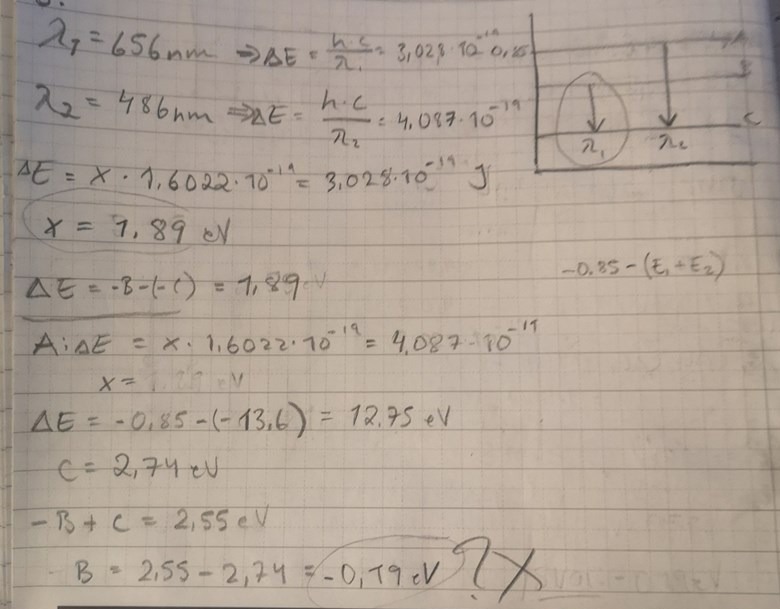 λ₁ = 656nm ⇒ ΔE = h·c/λ₁ = 3,028·10⁻¹⁹ 0,85
A
B
λ₂ = 486nm ⇒ ΔE = h·c/λ₂ = 4,087·10⁻¹⁹
C
λ₁ λ₂
ΔE = x · 1,6022·10⁻¹⁹ = 3,028·10⁻¹⁹ J
x = 1,89 eV
-0,85-(E₁-E₂)
ΔE = -B-(-C) = 1,89 eV
A: ΔE = x · 1,6022·10⁻¹⁹ = 4,087·10⁻¹⁹
x = eV
ΔE = -0,85-(-13,6) = 12,75 eV
C = 2,74 eV
-B + C = 2,55 eV
B = 2,55 - 2,74 = -0,19 eV ? X